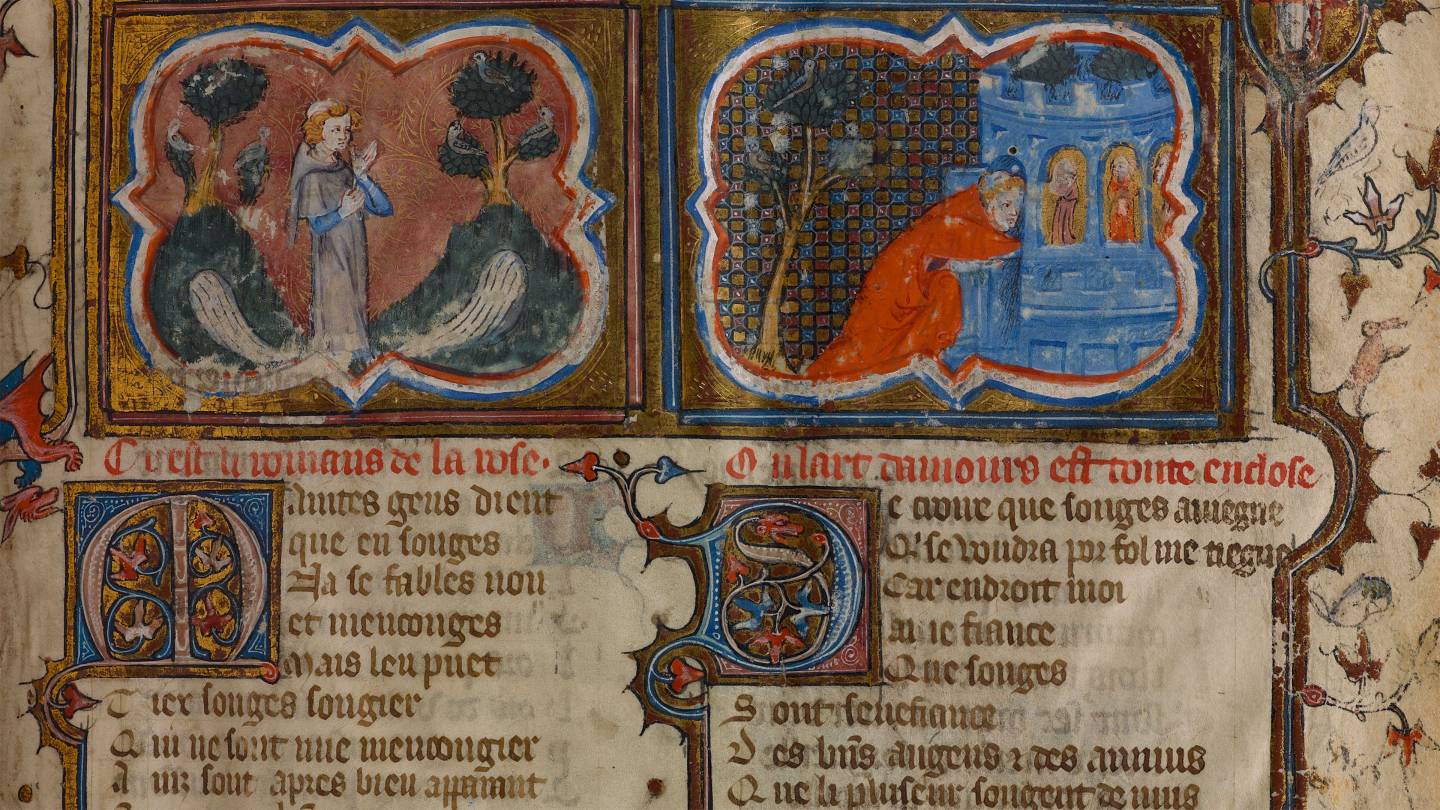 Cest li romans de la rose.
Maintes gens dient
que en songes
Na se fables non
et menconges
Mais len puet
Tiex songes songier
Qui ne sont mie mencongier
Ainz sont apres bien apparant
Ou lart damours est toute enclose
e croire que songes aviegne
Qi se voudra por fol me tiegne
Car endroit moi
ai ie fiance
Que songes
Sont senefiance
Des biens augens ⁊ des annuis
Que li pluseur songent de nuis